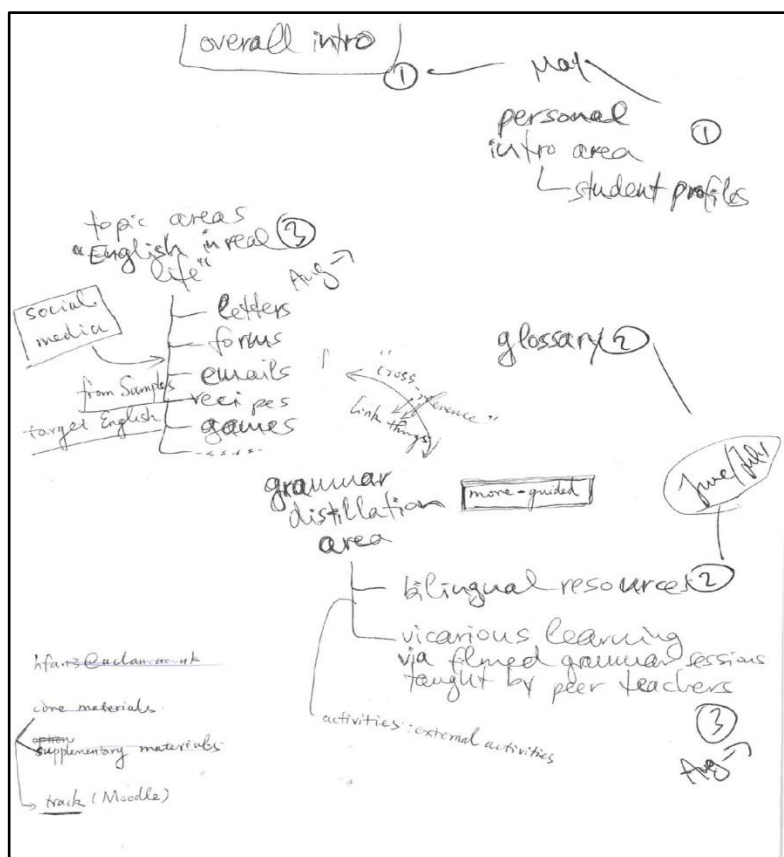 overall intro
①
May
personal ①
intro area
student profiles
topic areas
"English in real ③
life"
Aug →
social
media
letters
forms
emails
from Samples
recipes
target English
games
"cross
-reference"
link things
glossary ②
June/July
grammar
distillation
area
more-guided
bilingual resources ②
vicarious learning
via filmed grammar sessions
taught by peer teachers
③
Aug →
activities: external activities
core materials
supplementary materials
track (Moodle)